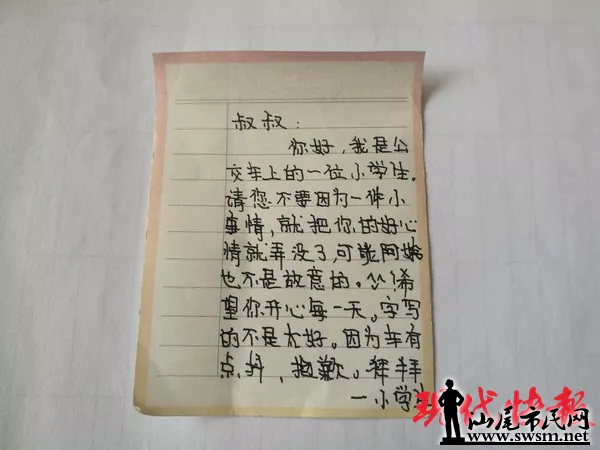 叔叔：
你好，我是公
交车上的一位小学生.
请您不要因为一件小
事情，就把你的好心
情就弄没了，可能阿姨
也不是故意的。^^!希
望你开心每一天。字写
的不是太好。因为车有
点抖，抱歉。拜拜
一小学生
现代快报
汕尾市民网
www.swsm.net